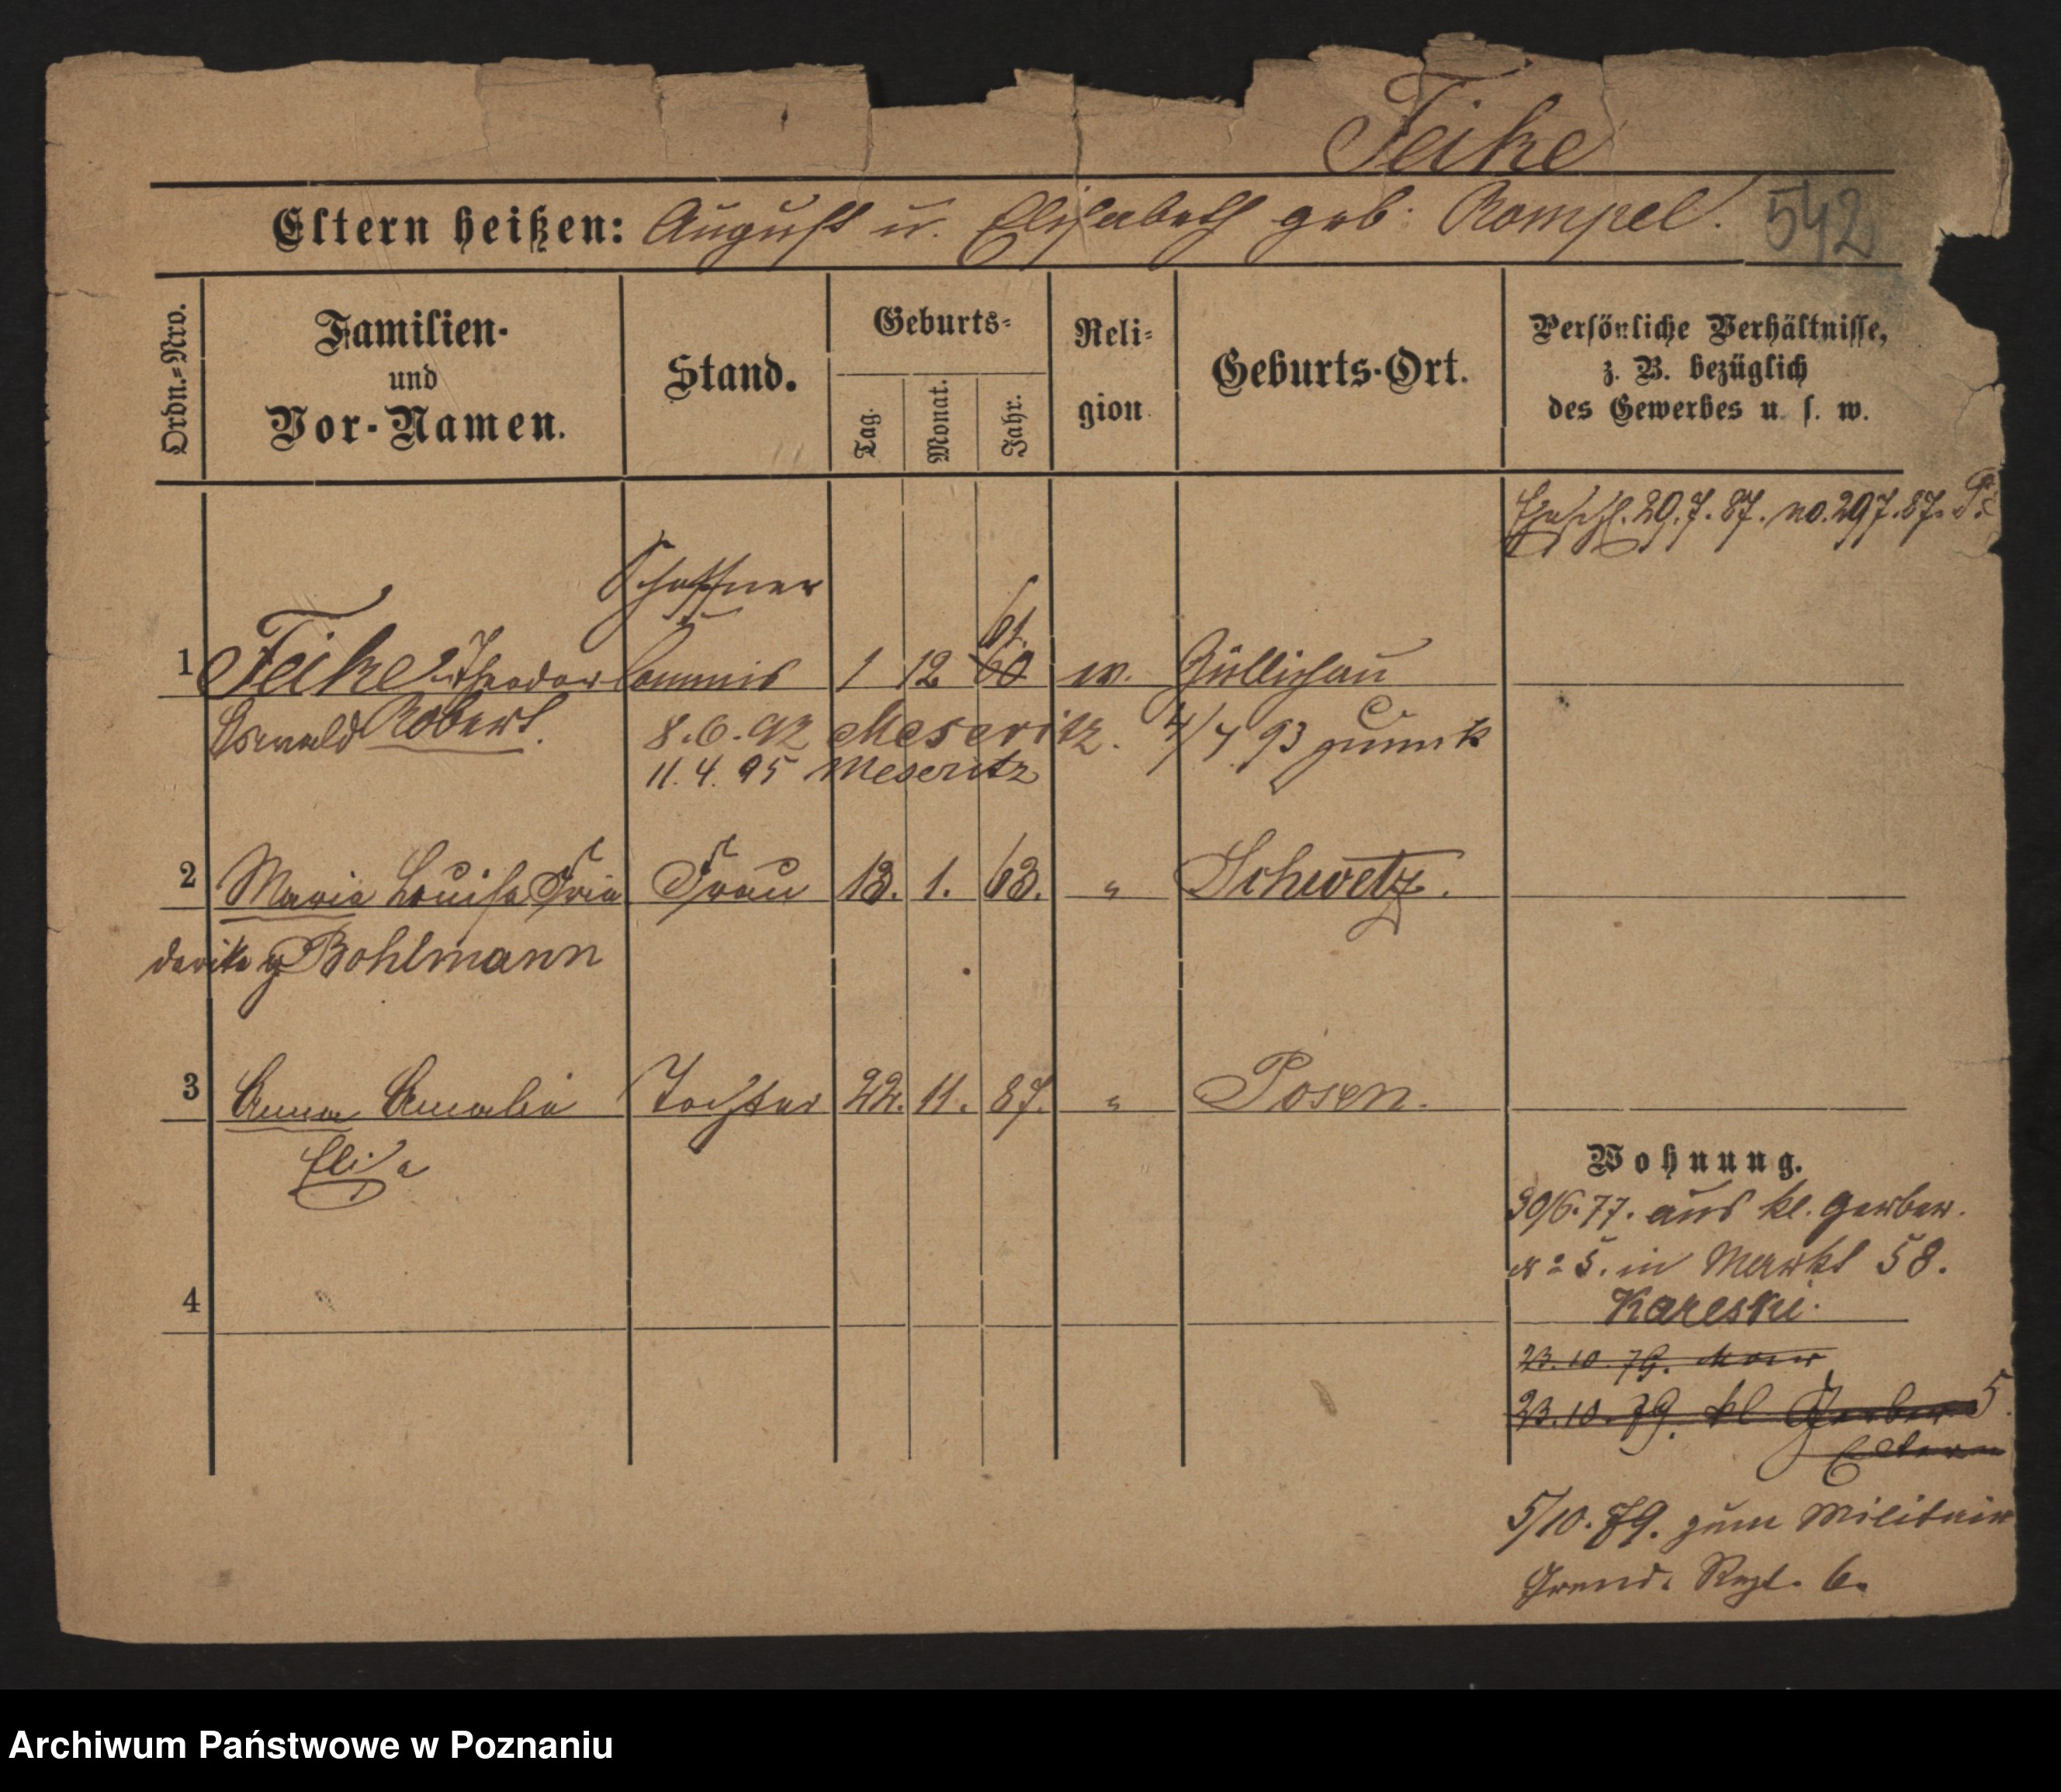 Feike
Eltern heißen: August u. Elisabeth geb: Rompel. 542
Ordn.-Nro.
Familien- und Vor-Namen.
Stand.
Geburts-
Tag. Monat. Jahr.
Reli-gion
Geburts-Ort.
Persönliche Verhältnisse,
z. B. bezüglich
des Gewerbes u. s. w.
Eheschl. 29.7.87. no. 297.87.
Schaffner
61.
1 Feike Theodor Commis 1 12 60 ev. Züllichau
Oswald Robert. 8.6.92 Meseritz. 4/7 93 zurück
11.4.95 Meseritz
2 Marie Louise Frie Frau 13. 1. 63. " Schwetz.
derike g Bohlmann
3 Anna Amalie Tochter 22. 11. 87. " Posen.
Elisa
Wohnung.
30/6.77. aus kl. Gerber.
No 5. in Markt 58.
4 Kareski.
23.10.79.
23.10.79. kl Gerber 5
Eltern
5/10.79. zum Militair
Grend. Regt. 6.
Archiwum Państwowe w Poznaniu